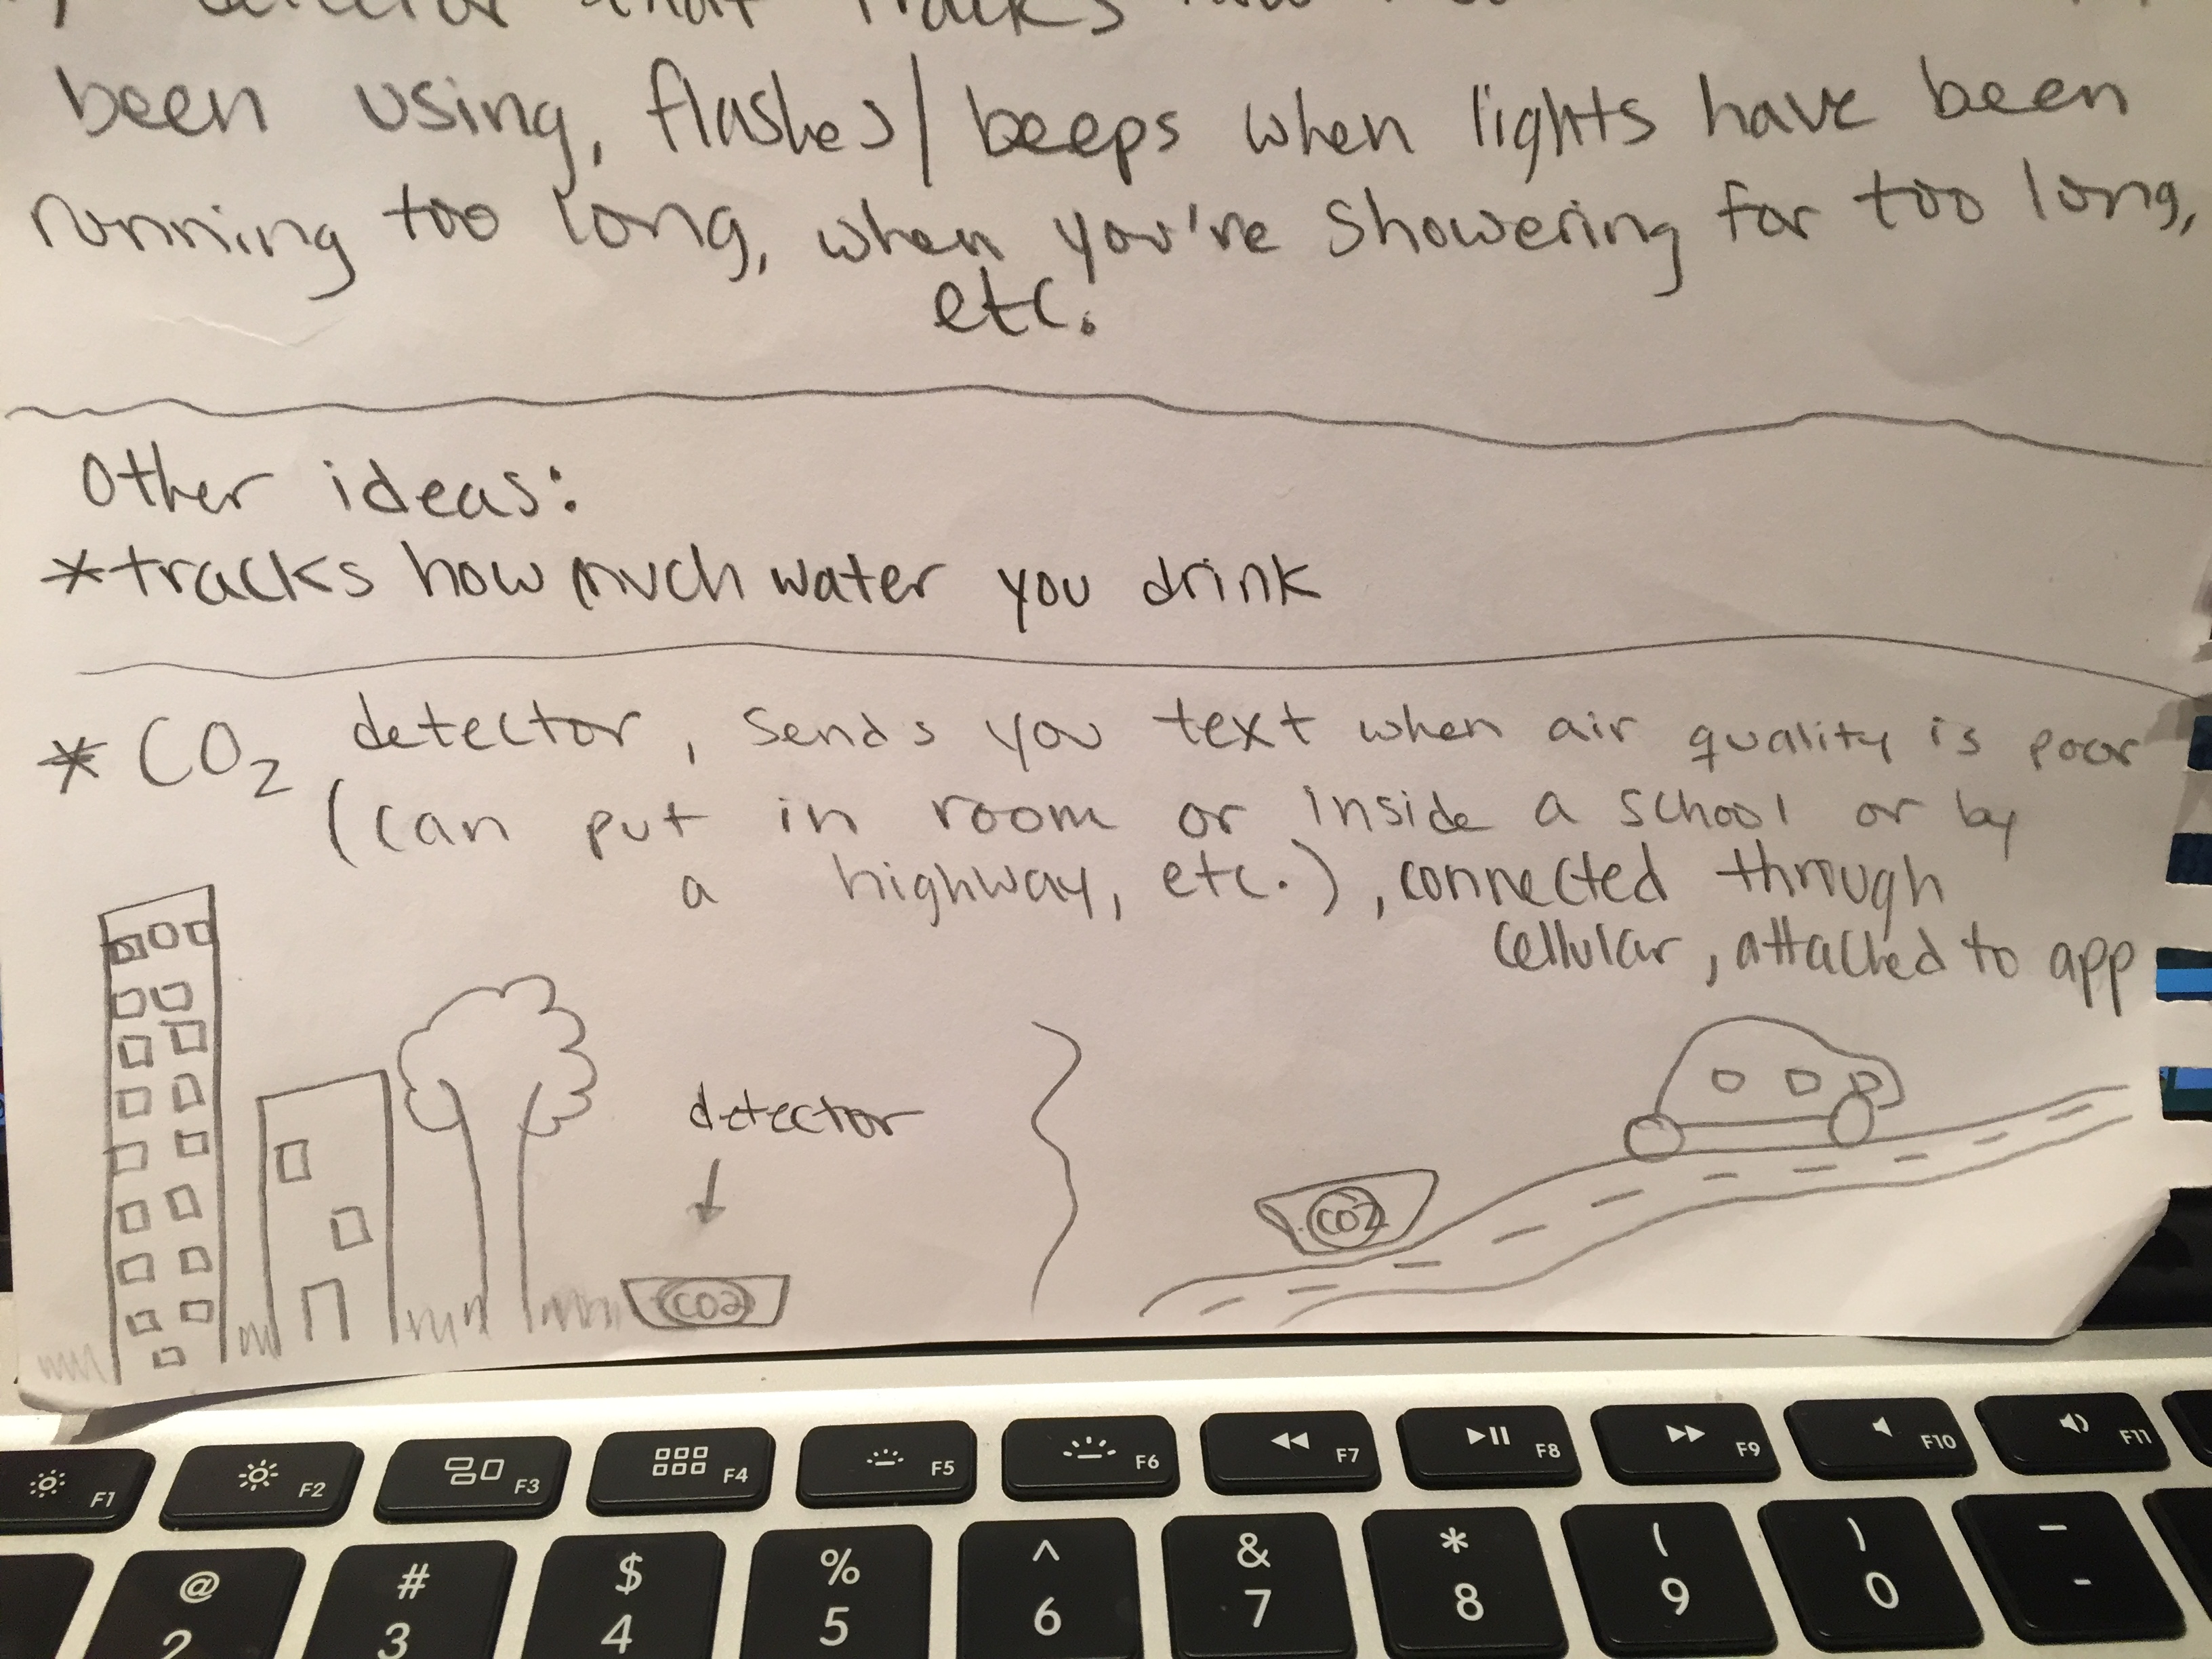 detector that tracks
been using, flashes/beeps when lights have been
running too long, when you're showering for too long,
etc.
Other ideas:
*tracks how much water you drink
* CO2 detector, sends you text when air quality is poor
(can put in room or inside a school or by
a highway, etc.), connected through
cellular, attached to app
detector
CO2
CO2
F1 F2 F3 F4 F5 F6 F7 F8 F9 F10 F11
@ # $ % ^ & * ( ) —
2 3 4 5 6 7 8 9 0 -